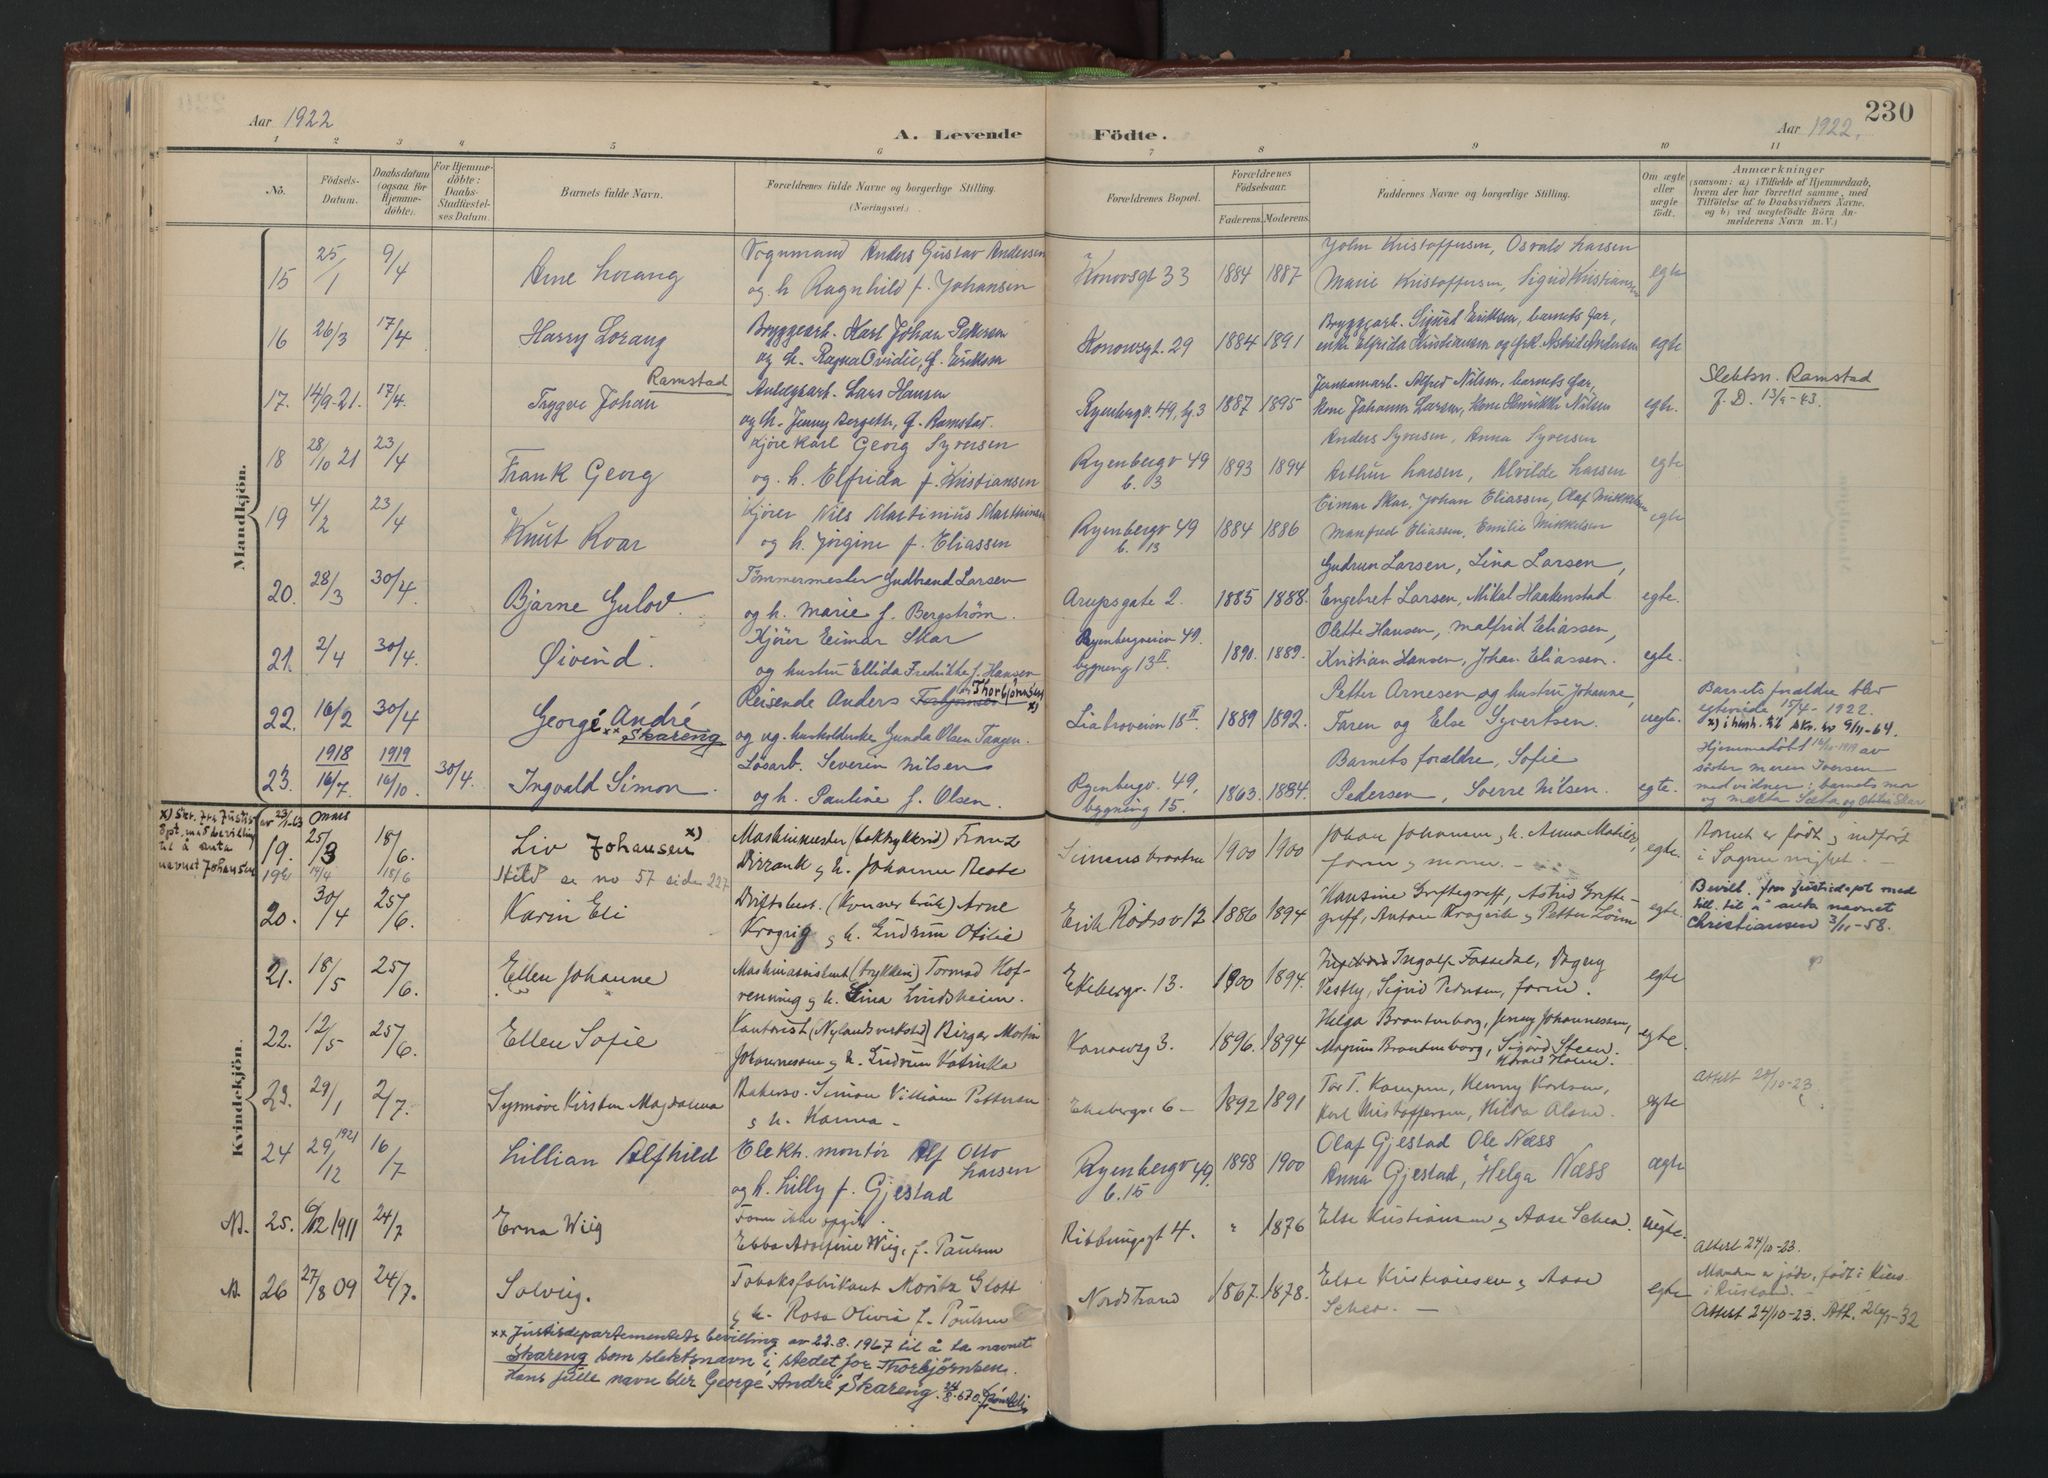 230
Aar 1922
A. Levende Födte.
Aar 1922.
1 2 3 4 5 6 7 8 9 10 11
No.
Födsels-
Datum.
Daabsdatum
(ogsaa for
Hjemme-
döbte).
For Hjemme-
döbte:
Daabs-
Stadfæstel-
ses Datum.
Barnets fulde Navn.
Forældrenes fulde Navne og borgerlige Stilling.
(Næringsvei.)
Forældrenes Bopæl.
Forældrenes
Födselsaar.
Faderens. Moderens.
Faddernes Navne og borgerlige Stilling.
Om ægte
eller
uægte
födt.
Anmærkninger
(saasom: a) i Tilfælde af Hjemmedaab,
hvem der har forrettet samme, med
Tilföielse af to Daabsvidners Navne,
og b) ved uægtefödte Börn An-
melderens Navn m. V.)
Mandkjön.
15 25/1 9/4 Arne Lorang
Vognmand Anders Gustav Andersen
og h Ragnhild f. Johansen
Konovsgt 33 1884 1887
John Kristoffersen, Osvald Larsen
Marie Kristoffersen, Sigrid Kristiansen
egte
16 26/3 17/4 Harry Lorang
Bryggearb. Karl Johan Pettersen
og h. Ragna Ovidie, f. Eriksen
Konowsgt. 29 1884 1891
Bryggearb. Sigurd Eriksen, barnets far,
enke Elfrida Kristiansen og frk. Astrid Andersen
egte
17. 14/9-21. 17/4. Trygve Johan Ramstad
Anlægsarb. Lars Hansen
og h. Jenny Bergeth, f. Ramstad.
Ryenbergv. 49, b.3 1887 1895
Jernbanearb. Alfred Nilsen, barnets far,
kone Johanne Larsen, kone Henrikke Nilsen
egte.
Slektsn. Ramstad
J. D. 13/9-43.
18 28/10 21 23/4 Frank Georg
Kjöre Karl Georg Syversen
og h. Elfrida f. Kristiansen
Ryenbergv 49
b. 3
1893 1894
Anders Syversen, Anna Syversen
Arthur Larsen, Alvilde Larsen
egte
19 4/2 23/4 Knut Roar
Kjörer Nils Martinius Marthinsen
og h. Jörgine f. Eliassen
Ryenbergv 49
b. 13
1884 1886
Eimar Skar, Johan Eliassen, Olaf Mikkelsen
Manfred Eliassen, Emilie Mikkelsen
egte
20. 28/3 30/4. Bjarne Gulov.
Tömmermester Gudbrand Larsen
og h. Marie f. Bergström.
Arupsgate 2. 1885 1888.
Gudrun Larsen, Lina Larsen,
Engebret Larsen, Mikal Haakenstad
egte.
21. 2/4 30/4. Öivind.
Kjörer Eimar Skar
og hustru Ellida Fredrikke f. Hansen
Ryenbergveien 49.
bygning 13 II
1890. 1889.
Olette Hansen, Malfrid Eliassen,
Kristian Hansen, Johan Eliassen.
egte.
22. 16/2 30/4 Georgé André
xx Skareng
Reisende Anders Torbjörnsen Thorbjörnsen x)
og ug. husholderske Gunda Olsen Tangen.
Liabroveien 18 II 1889 1892.
Petter Arnesen og hustru Johanne,
Faren og Else Syvertsen.
uegte.
Barnets forældre blev
egteviede 15/4-1922.
x) i henh. til skr. av 9/11-64.
1918 1919
23. 16/7. 16/10. 30/4. Ingvald Simon.
Lösarb. Severin Nilsen
og h. Pauline f. Olsen.
Ryenbergv. 49,
bygning 15.
1863. 1884.
Barnets forældre, Sofie
Pedersen, Sverre Nilsen.
egte.
Hjemmedöbt 16/10-1919 av
söster Maren Iversen
med vidner: barnets mor
Kvindekjön.
x) Skr. fra Justis- av 23/1-63
dpt. med bevilling
til å anta
navnet Johansen
19. 25/3 18/6. Liv Johansen x)
Maskinmester Franz
Dirrank & h. Johanne
1900 1900
Johan Johansen, h. Anna Matilde,
faren & moren. -
egte.
Barnet er födt & indfört
i Sogne
19b 14/4 18/6 Hild se no 57 side 227
20. 30/4 25/6. Karin Eli
Arne
Kragvig & h. Gudrun Otilie
Erik Rödsv 12 1886 1894
egte.
Bevill. fra Justisdept. med
till. til å anta navnet
Christiansen 3/11-58.
21. 18/5 25/6. Ellen Johanne
Maskinassistent Tormod Hof-
renning & h. Lina Lindsheim.
Ekebergv. 13. 1900 1894.
Ingolf Fossedal, Dagny
Vestby, Sigrid Pedersen, faren.
egte
22. 12/5 25/6. Ellen Sofie
Kontorist (Nylandsverksted) Birger Martin
Johannessen & h. Gudrun Katinka
Konowsg 3. 1896. 1894
Helga Brantenborg, Jenny Johannessen,
Magnus Brantenborg, Sigurd Steen.
egte.
23. 29/1 2/7. Synnöve Kirsten Magdalena
Bakersv. Simon Villiam Pettersen
& h. Hanna -
Ekebergv. 6 - 1892 1891
Tor T. Kampen, Henny Karlsen,
Karl Kristoffersen, Hilda Olsen.
egte
Attest 28/10-23.
24 29/12 1921 16/7 Lillian Alfhild
Elektr. montör Alf Otto
Larsen
og h. Lilly f. Gjestad
Ryenbergv 49.
b. 15
1898 1900
Olaf Gjestad Ole Næss
Anna Gjestad, Helga Næss
ægte
N. 25. 6/12 1911 24/7 Erna Wiig
Faren ikke opgit.
Ebba Adolfine Wiig, f. Paulsen
Ribbungsgt 4. " 1876
Else Kristiansen & Aase Schea.
uegte.
Attest 24/10-23.
N. 26 27/8 09 24/7. Solveig.
Tobaksfabrikant Moritz Glott
& h. Rosa Olivia f. Paulsen
Nordstrand 1867. 1878.
Else Kristiansen & Aase
Schea. -
egte
Manden er jöde, födt i Kiev
i Rusland. -
Attest 24/10-23.
xx Justisdepartementets bevilling av 22.8.1967 til å ta navnet
Skareng som slektsnavn i stedet for Thorbjörnsen.
Hans fulle navn blir Georgé André Skareng.